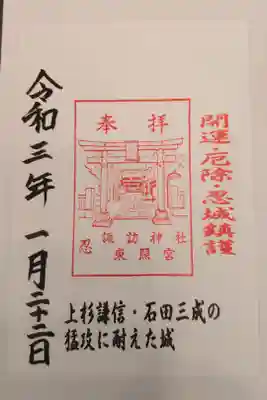 開運・厄除・忍城鎮護
奉拝
諏訪神社
忍 東照宮
上杉謙信・石田三成の
猛攻に耐えた城
令和三年 一月二十二日